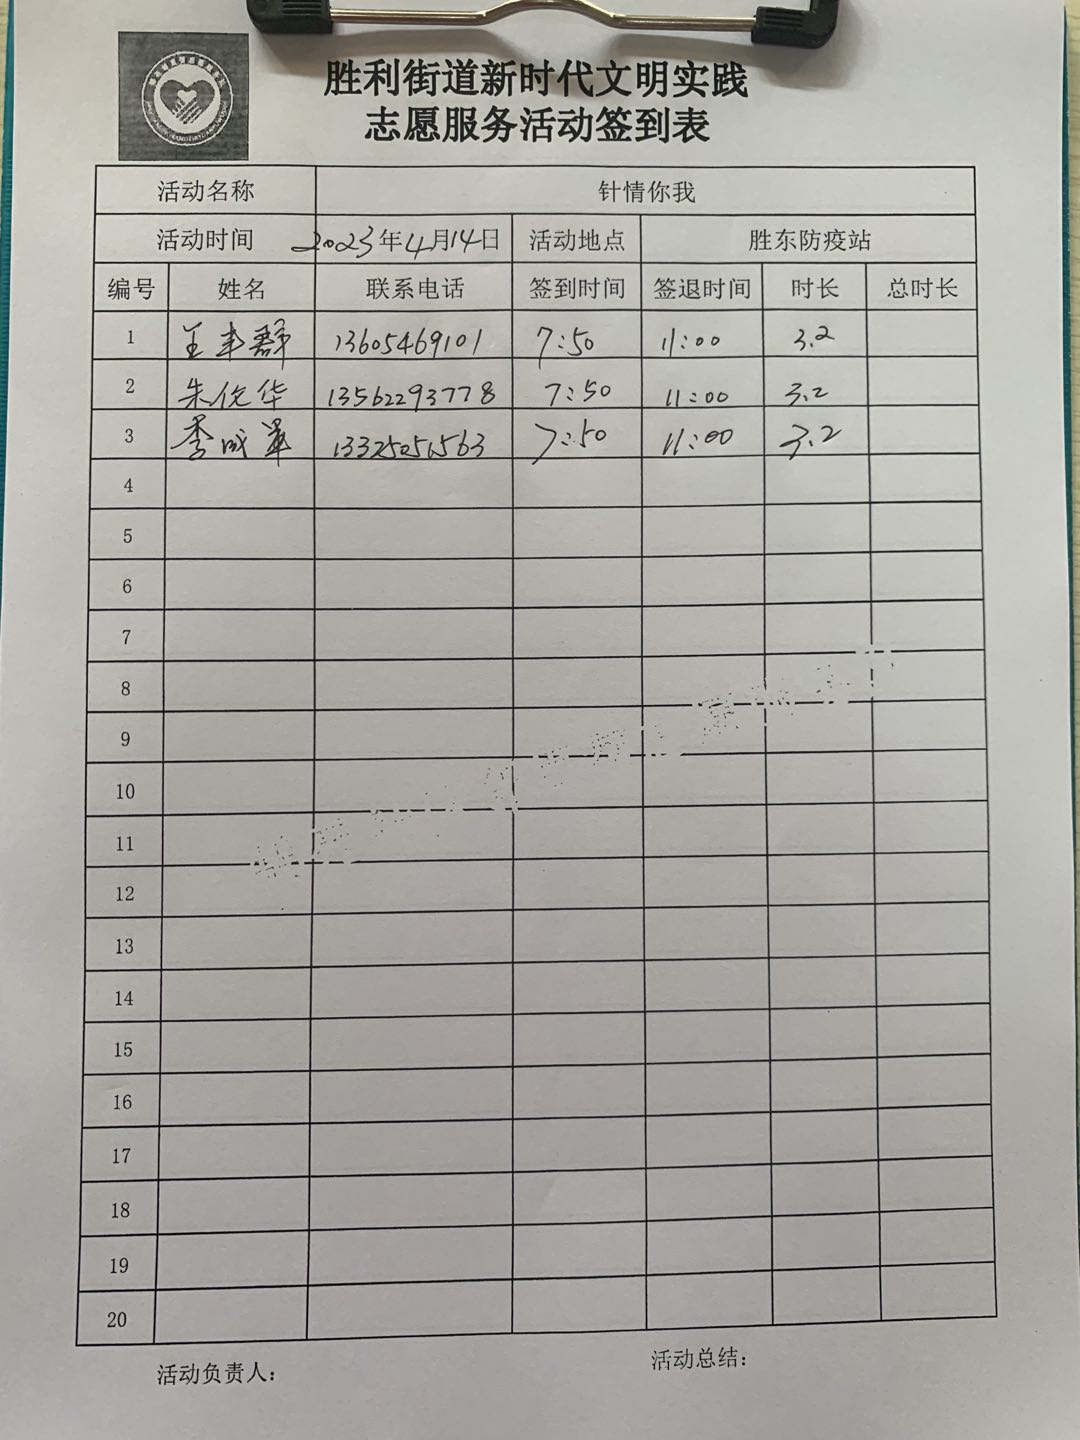 胜利街道新时代文明实践
志愿服务活动签到表
活动名称 针情你我
活动时间 2023年4月14日 活动地点 胜东防疫站
编号 姓名 联系电话 签到时间 签退时间 时长 总时长
1 王丰群 13605469101 7:50 11:00 3.2
2 朱伦华 13562293778 7:50 11:00 3.2
3 李成军 13325051563 7:50 11:00 3.2
4
5
6
7
8
9
10
11
12
13
14
15
16
17
18
19
20
活动负责人: 活动总结: